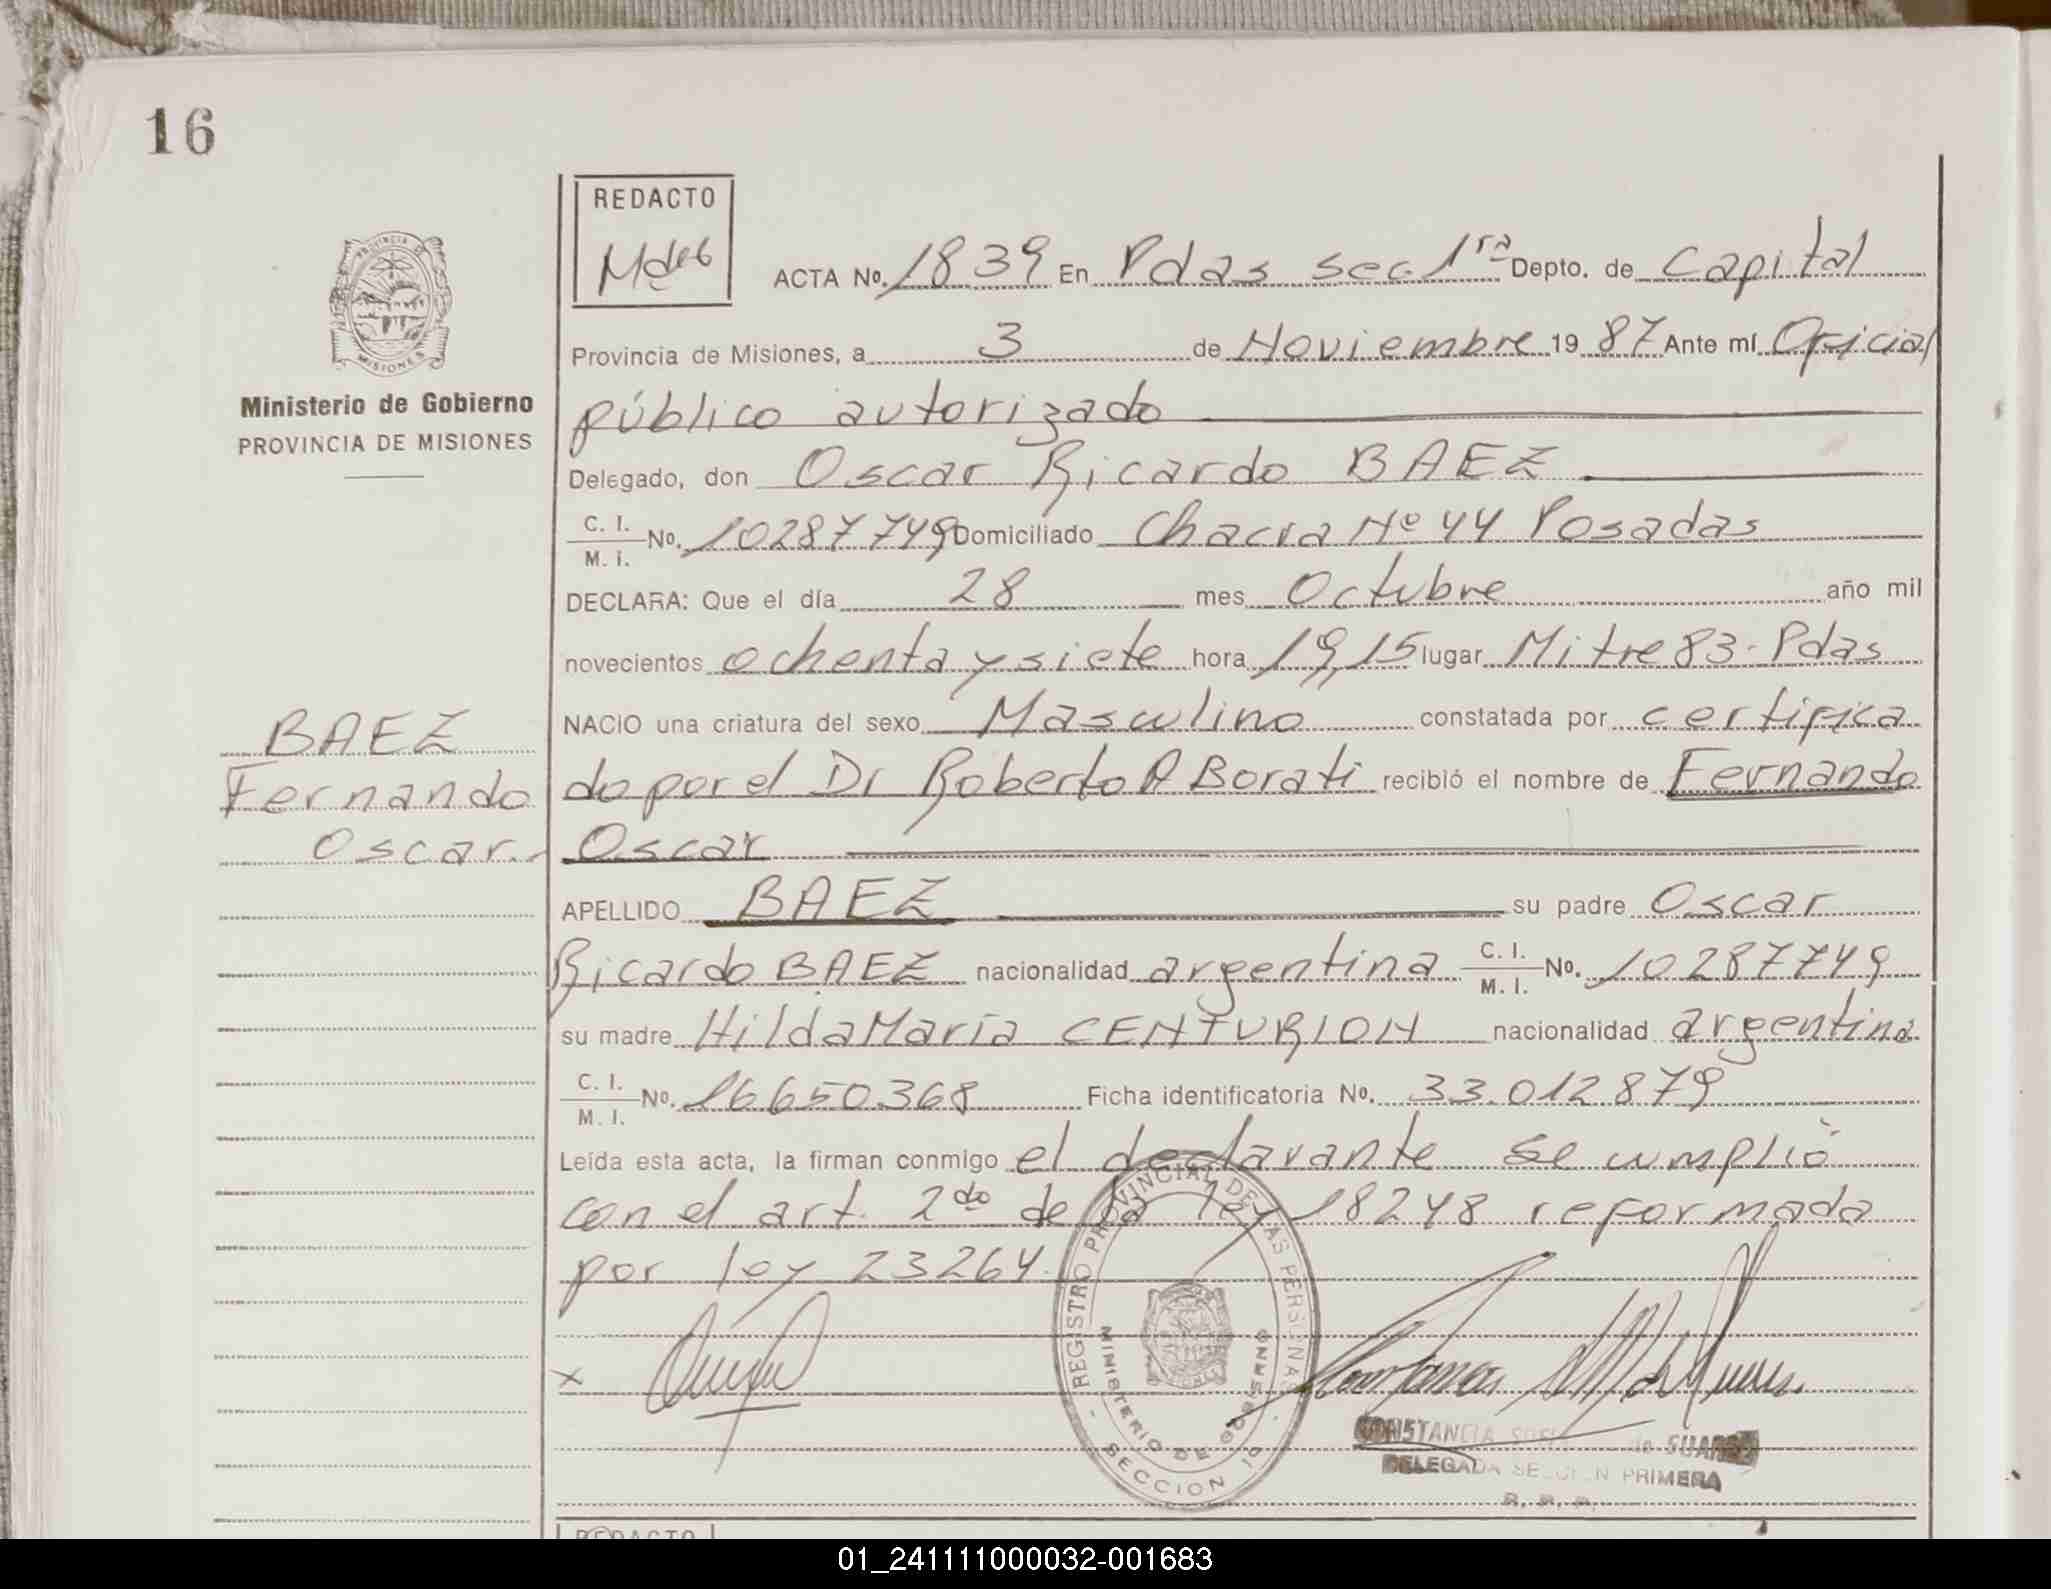 16
REDACTO
ACTA No. 1839 En Pdas sec. 1ra Depto. de Capital
PROVINCIA DE MISIONES
Provincia de Misiones, a 3 de Noviembre 19 87 Ante mí Oficial
Ministerio de Gobierno
PROVINCIA DE MISIONES
público autorizado
Delegado, don Oscar Ricardo BAEZ
C. I. M. I. No. 10287749 Domiciliado Chacra Nº 44 Posadas
DECLARA: Que el día 28 mes Octubre año mil
novecientos ochenta y siete hora 19,15 lugar Mitre 83. Pdas
NACIO una criatura del sexo Masculino constatada por certifica
do por el Dr Roberto A Borati recibió el nombre de Fernando
Oscar
BAEZ
Fernando
Oscar.-
APELLIDO BAEZ su padre Oscar
Ricardo BAEZ nacionalidad argentina C. I. M. I. No. 10287749
su madre Hilda María CENTURION nacionalidad argentina
C. I. M. I. No. 16650368 Ficha identificatoria No. 33.012.879
Leída esta acta, la firman conmigo el declarante se cumplió
con el art. 2do de la ley 18248 reformada
por ley 23264.
x
REGISTRO PROVINCIAL DE LAS PERSONAS
MINISTERIO DE GOBIERNO
- SECCION 1a -
CONSTANCIA de SUAREZ
DELEGADA SECCION PRIMERA
R. P. P.
REDACTO
01_241111000032-001683